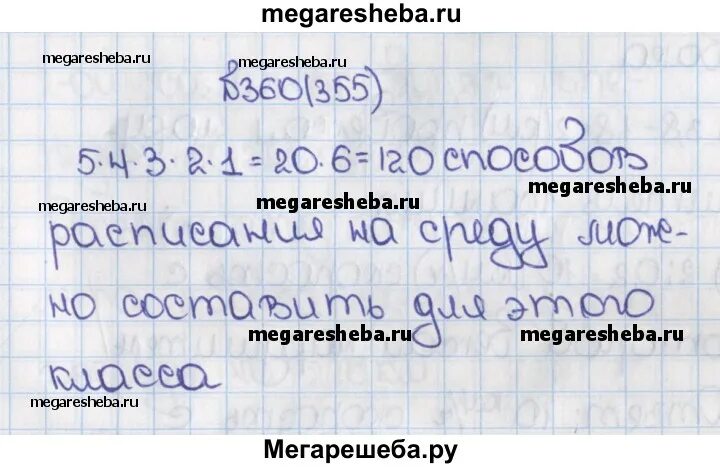 megaresheba.ru
megaresheba.ru
megaresheba.ru
в360(355)
5·4·3·2·1=20·6=120 способов
megaresheba.ru
megaresheba.ru
megaresheba.ru
расписания на среду мож-
но составить для этого
megaresheba.ru
megaresheba.ru
класса
megaresheba.ru
Мегарешеба.ру